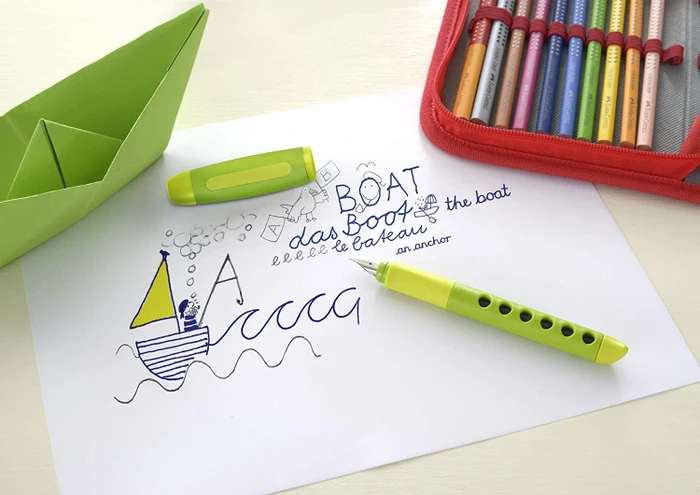 A B BOAT
das Boot the boat
eeeee le bateau
an anchor
A